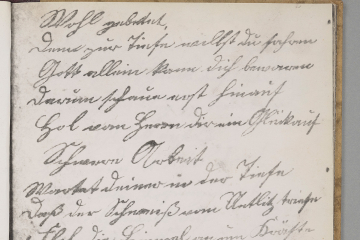 Wohl gebetet,
Denn zur Tiefe willst du fahren
Gott allein kann dich bewaren
Darum schaue erst hinauf
Hol vom Herrn dir ein Glückauf
Schwere Arbeit
Wartet deiner in der Tiefe
Daß der Schweiß vom Antlitz triefe
die Himmel Kräfte